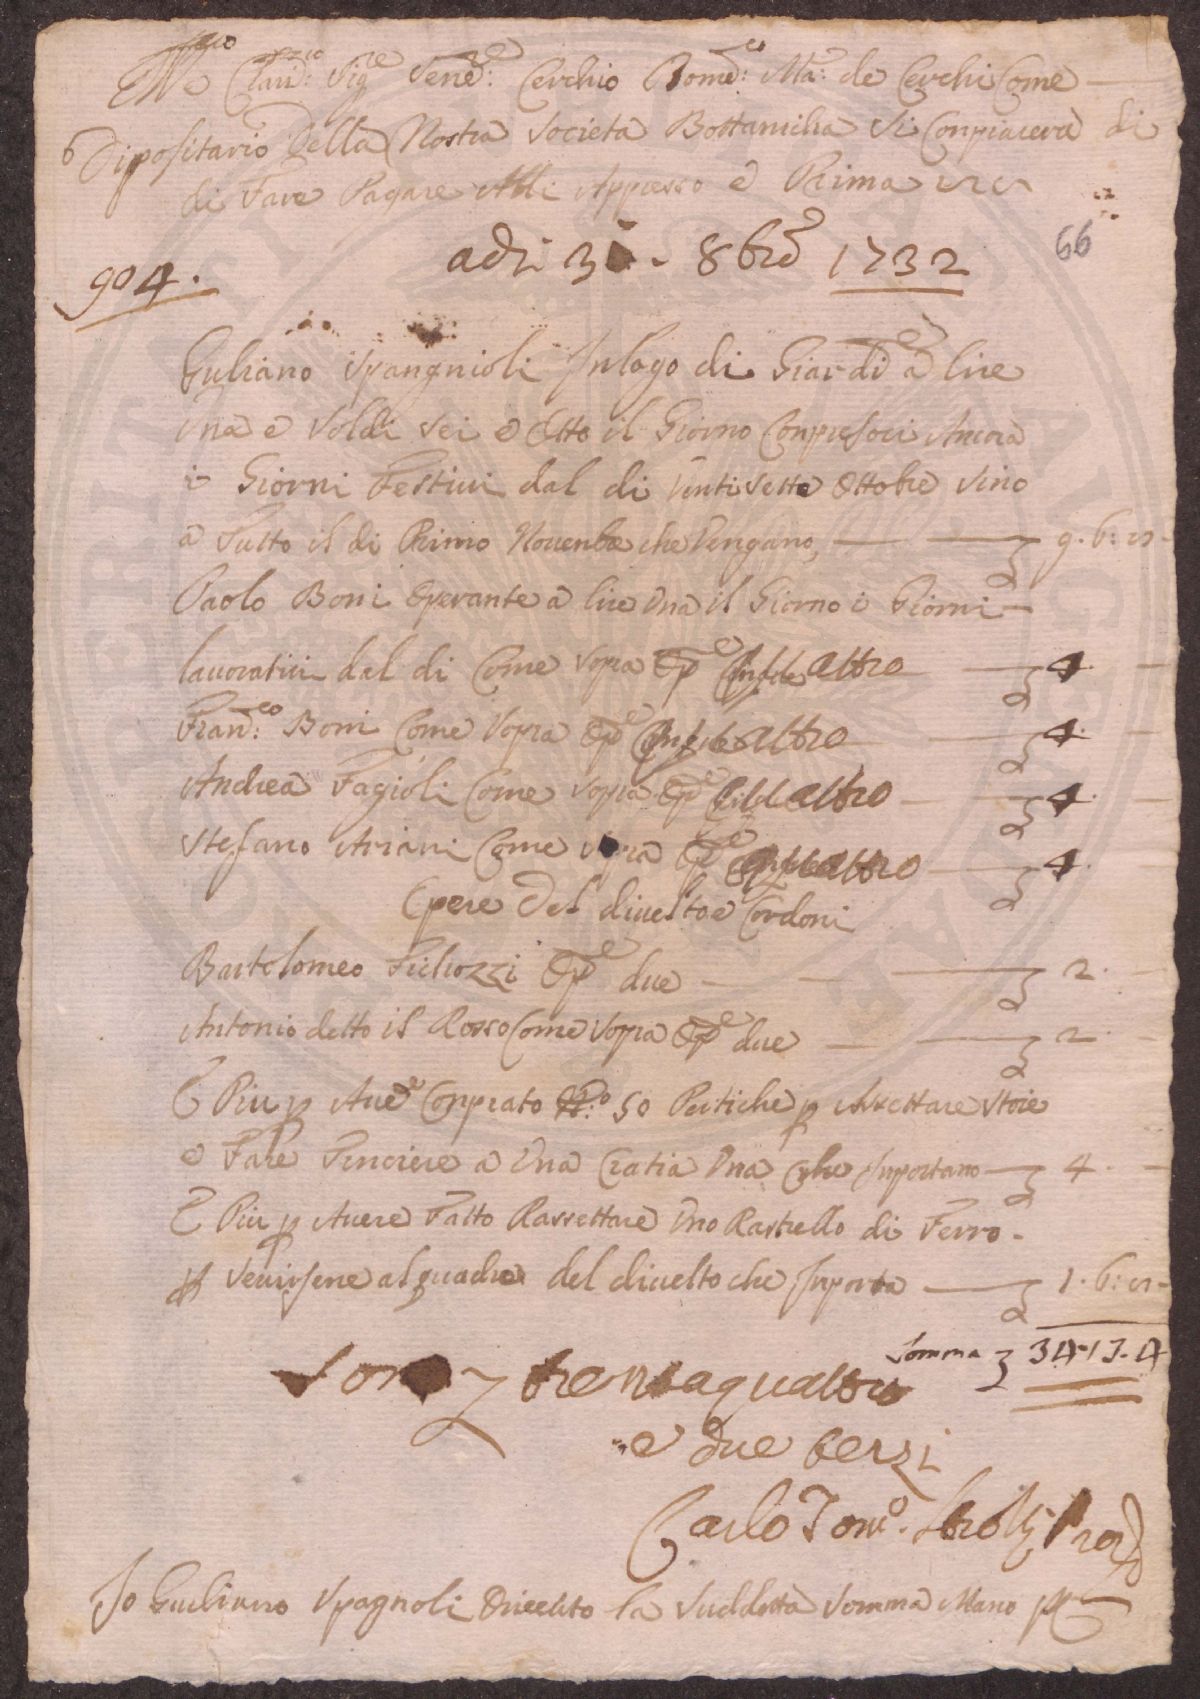 Ill.mo Clari.mo Sig.re Sene.re Cerchio Bome.co Ma: de Cerchi Come
Dipositario Della Nostra Società Bottanicha Si Conpiacerà di
di Fare Pagare Alli Appresso e Prima
adì 31 - 8bre 1732
66
904.
Guliano Spangnioli In logo di Giardi.e a lire
Una e Soldi Sei e Otto il Giorno Conpresoci Ancora
i Giorni Festivi dal di Vintisette Ottobre Sino
a Tutto il di Primo Novenbre che Vengano, — 9. 6: 8
Paolo Boni Operante a lire Una il Giorno i Giorni
lavorativi dal di Come Sopra Op.e quattro — 4
Fran.co Boni Come Sopra Op.e quattro — 4
Andrea Fagioli Come Sopra Op.e quattro — 4
Stefano Ariani Come Sopra Op.e quattro — 4
Opere Del divelto e Cordoni
Bartolomeo Ficliozzi Op.e due — 2
Antonio detto il Rosso Come Sopra Op.e due — 2
E Piu p Avere Conprato N.o 50 Pertiche p Assettare Stoie
e Fare a Una Cratia Una Che Inportano — 4
E Piu p Avere Fatto Rassettare Uno Rastrello di Ferro
p Servirsene al quadro del divelto che Inporta — 1. 6: 8
Somma 34-13-4
Sono trentaquattro
e due terzi
Carlo Tom.o
Io Guliano Spagnoli Ò Riceuto la Suddetta Somma Mano pp